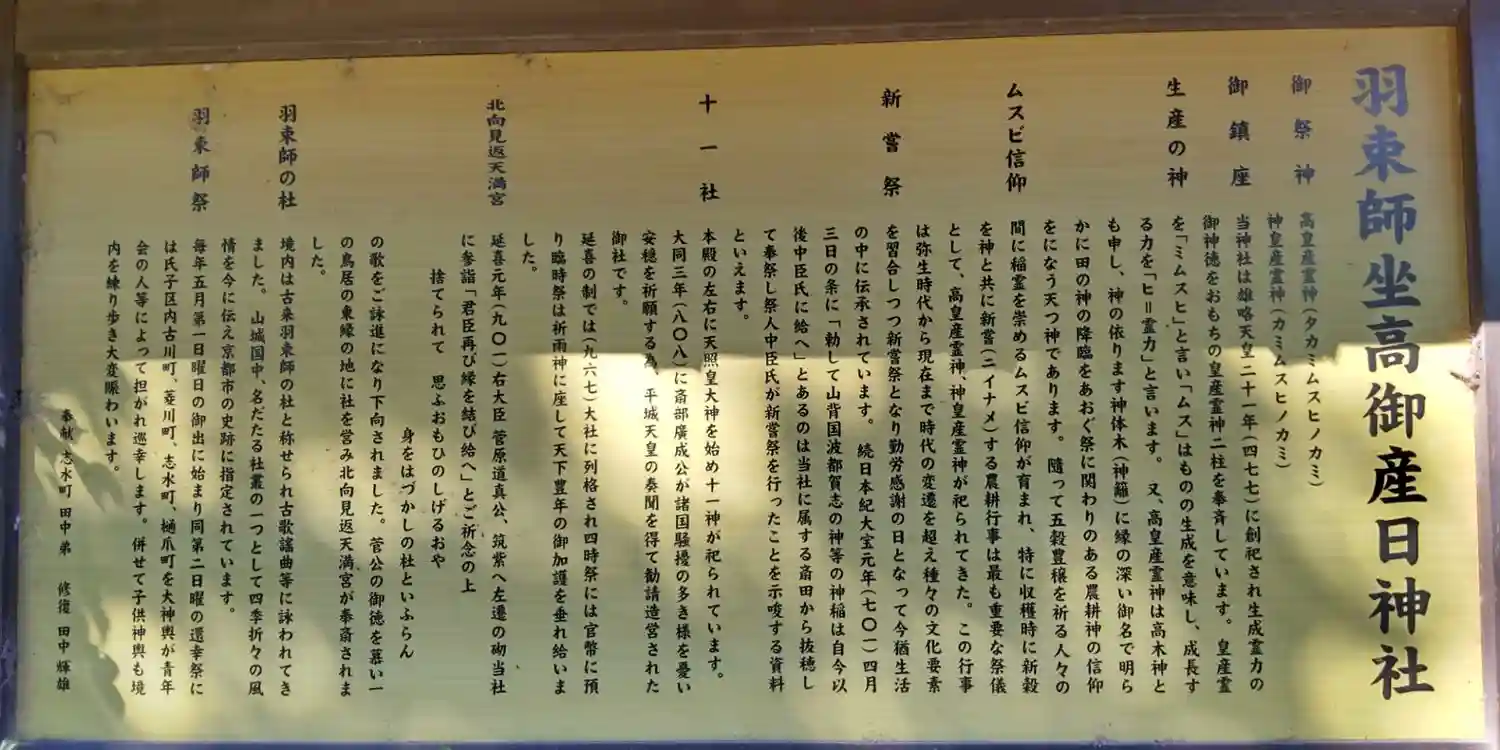 羽束師坐高御産日神社
御祭神 高皇産霊神(タカミムスヒノカミ)
神皇産霊神(カミムスヒノカミ)
御鎮座 当神社は雄略天皇二十一年(四七七)に創祀され生成霊力の
御神徳をおもちの皇産霊神二柱を奉斉しています。皇産霊
生産の神 を「ミムスヒ」と言い「ムス」はものの生成を意味し、成長す
る力を「ヒ=霊力」と言います。又、高皇産霊神は高木神と
も申し、神の依ります神体木(神籬)に縁の深い御名で明ら
かに田の神の降臨をあおぐ祭に関わりのある農耕神の信仰
をになう天つ神であります。隨って五穀豊穣を祈る人々の
ムスビ信仰 間に稲霊を崇めるムスビ信仰が育まれ、特に収穫時に新穀
を神と共に新嘗(ニイナメ)する農耕行事は最も重要な祭儀
として、高皇産霊神、神皇産霊神が祀られてきた。この行事
は弥生時代から現在まで時代の変遷を超え種々の文化要素
新嘗祭 を習合しつつ新嘗祭となり勤労感謝の日となって今猶生活
の中に伝承されています。続日本紀大宝元年(七〇一)四月
三日の条に「勅して山背国波都賀志の神等の神稲は自今以
後中臣氏に給へ」とあるのは当社に属する斎田から抜穂し
て奉祭し祭人中臣氏が新嘗祭を行ったことを示唆する資料
といえます。
十一社 本殿の左右に天照皇大神を始め十一神が祀られています。
大同三年(八〇八)に斎部廣成公が諸国騒擾の多き様を憂い
安穏を祈願する為、平城天皇の奏聞を得て勧請造営された
御社です。
延喜の制では(九六七)大社に列格され四時祭には官幣に預
り臨時祭は祈雨神に座して天下豊年の御加護を垂れ給いま
した。
北向見返天満宮 延喜元年(九〇一)右大臣 菅原道真公、筑紫へ左遷の砌当社
に参詣「君臣再び縁を結び給へ」とご祈念の上
捨てられて 思ふおもひのしげるおや
身をはづかしの社といふらん
の歌をご詠進になり下向されました。菅公の御徳を慕い一
の鳥居の東縁の地に社を営み北向見返天満宮が奉斎されま
した。
羽束師の杜 境内は古来羽束師の杜と称せられ古歌謡曲等に詠われてき
ました。山城国中、名だたる社叢の一つとして四季折々の風
情を今に伝え京都市の史跡に指定されています。
羽束師祭 毎年五月第一日曜日の御出に始まり同第二日曜の還幸祭に
は氏子区内古川町、菱川町、志水町、樋爪町を大神輿が青年
会の人等によって担がれ巡幸します。併せて子供神輿も境
内を練り歩き大変賑わいます。
奉献 志水町 田中弟 修復 田中輝雄